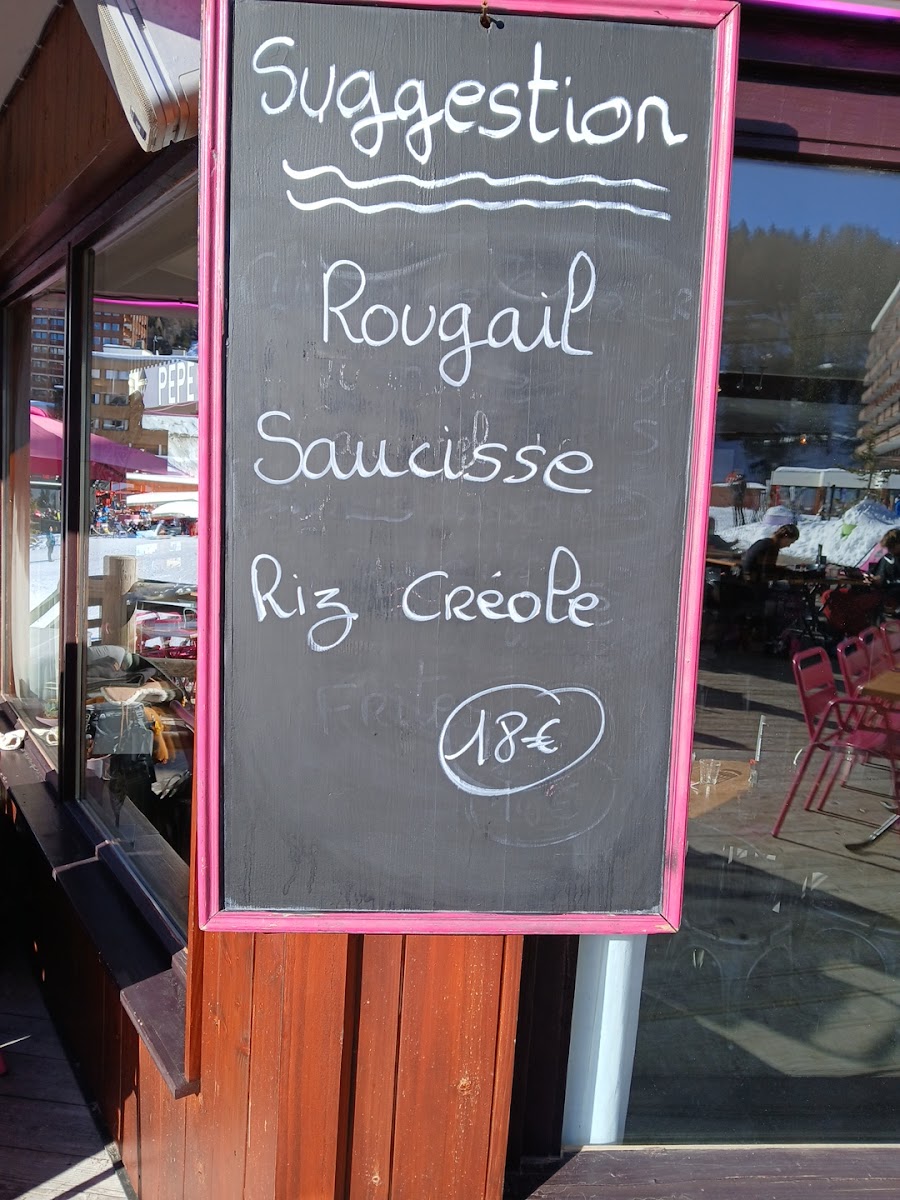 Suggestion
Rougail
Saucisse
Riz Créole
18€
PEPE